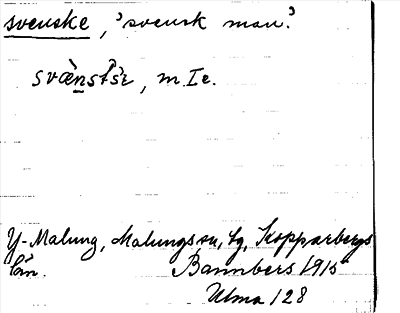 svenske, 'svensk man.'
svæ̀nstŝe, m. Ie.
Y-Malung, Malungs sn, Kopparbergs
län. Bannbers 1915
Ulma 128